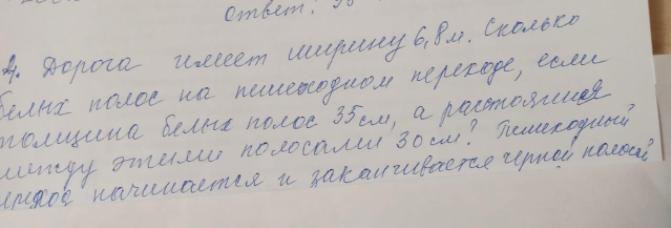 Ответ:
4. Дорога имеет ширину 6,8м. Сколько
белых полос на пешеходном переходе, если
толщина белых полос 35см, а расстояния
между этими полосами 30см? Пешеходный
начинается и заканчивается черной полосой